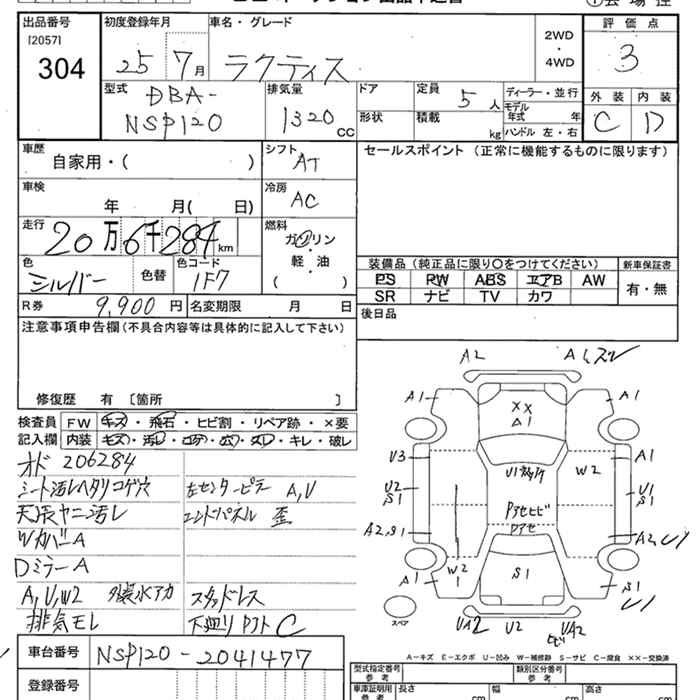 出品番号 初度登録年月 車名・グレード 評価点
[2057]
304 25 7月 ラクティス 2WD・4WD 3
型式 DBA-NSP120 排気量 1320 CC ドア 定員 5人 ディーラー・並行 外装 内装
形状 積載 kg モデル年式 年 C D
ハンドル 左・右
車歴 自家用・( ) シフト AT セールスポイント (正常に機能するものに限ります)
車検 年 月( 日) 冷房 AC
走行 20万6千284km 燃料 ガソリン
軽・油
( )
色 シルバー 色替 色コード 1F7
装備品(純正品に限り○をつけてください) 新車保証書
PS PW ABS エアB AW 有・無
SR ナビ TV カワ
R券 9,900円 名変期限 月 日 後日品
注意事項申告欄(不具合内容等は具体的に記入して下さい)
修復歴 有 〔箇所 〕
検査員 FW キズ・飛石・ヒビ割・リペア跡・×要
記入欄 内装 キズ・汚レ・コゲ・穴・ヌレ・キレ・破レ
オド 206284
シート汚レヘタリコゲ穴 左センターピラー A,U
天張ヤニ汚レ エンドパネル 歪
WカバーA
DミラーA
A,U,W2 外装水アカ スタッドレス
排気モレ 下廻り C
車台番号 NSP120-2041477
登録番号
A2 A1,
A1 A1
XX
A1
U3 W2 A1
U2 U1
S1 S1
A2,S1 A2,U1
W2
A1 S1 S1
U1
スペア UA2 U2 UA2
ヒビ
A-キズ E-エクボ U-凹み W-補修跡 S-サビ C-腐食 XX-交換済
型式指定番号 参考 類別区分番号 参考
車庫証明用 参考 長さ cm 幅 cm 高さ cm